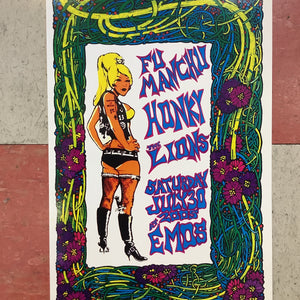 FU
MANCHU
HONKY
LIONS
SATURDAY
JULY 30
EMOS